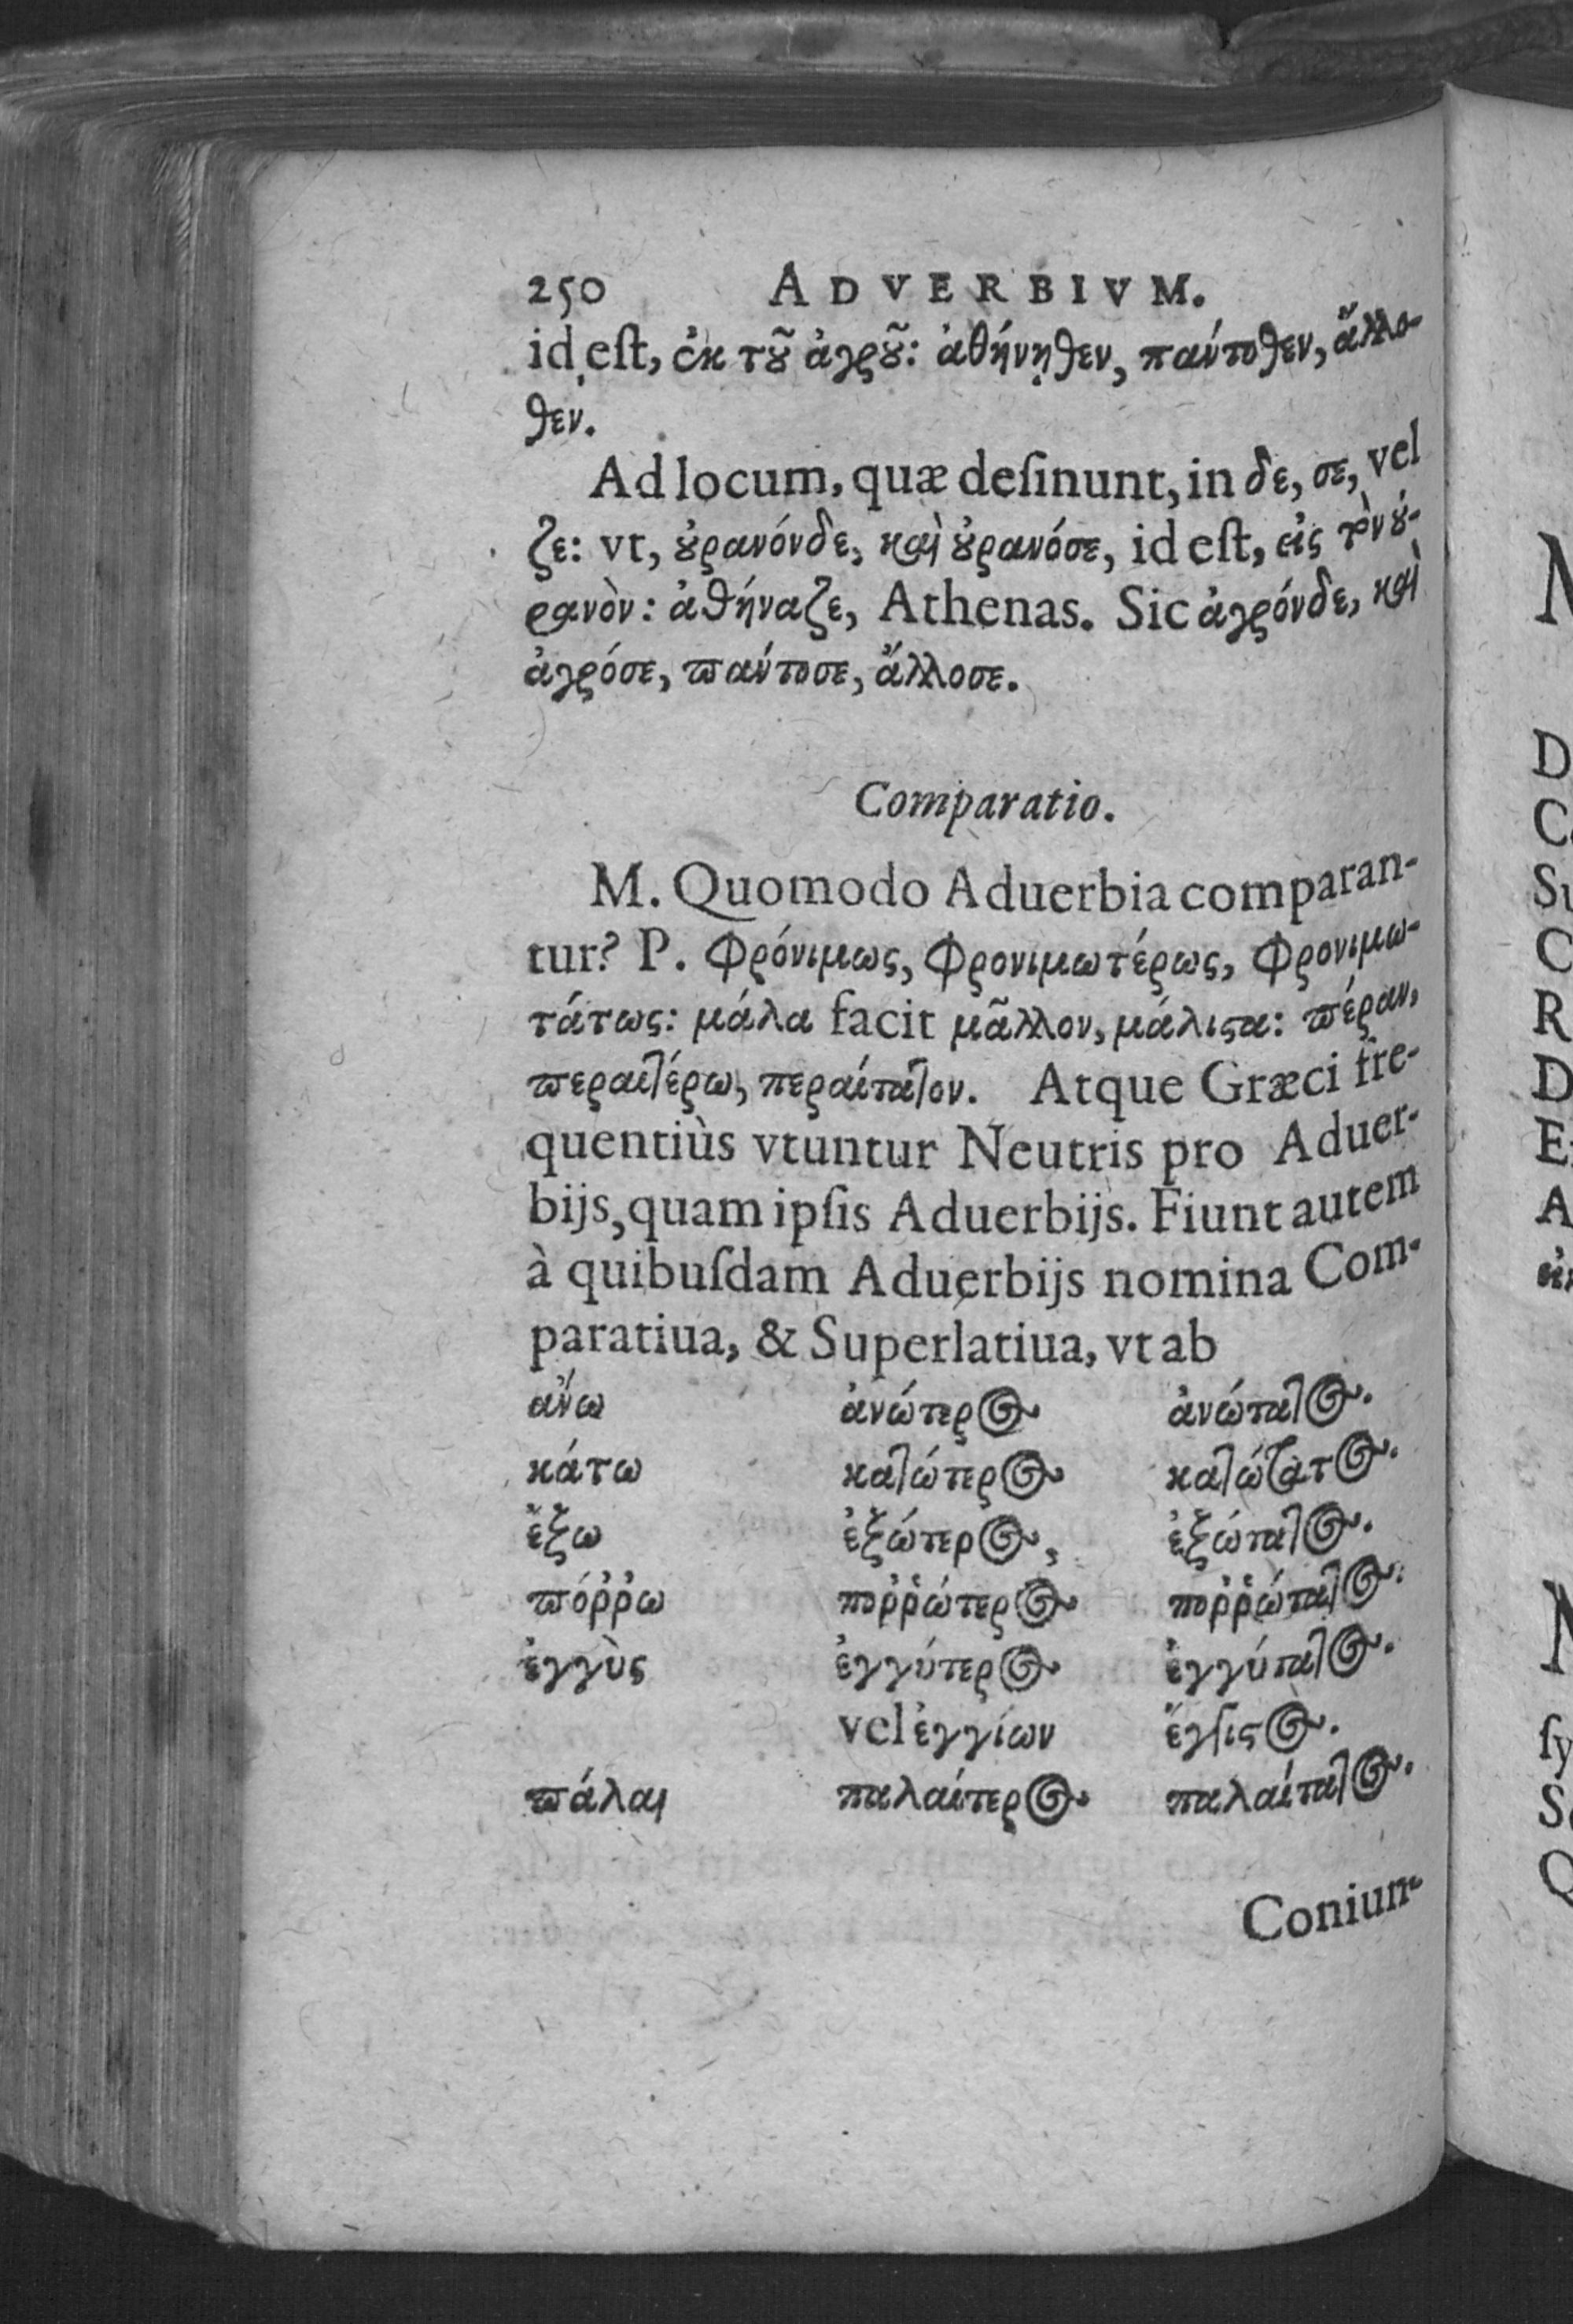 250 ADVERBIVM.
id est, ἐκ τȣ͂ ἀγρȣ͂: ἀθήνηθεν, πάντοθεν, ἄλλο-
θεν.
Ad locum, quæ deſinunt, in δε, σε, vel
ζε: vt, ȣ̓ρανόνδε, καὶ ȣ̓ρανόσε, id est, εἰς τὸν ȣ̓-
ρανὸν: ἀθήναζε, Athenas. Sic ἀγρόνδε, καὶ
ἀγρόσε, πάντοσε, ἄλλοσε.
Comparatio.
M. Quomodo Aduerbia comparan-
tur? P. Φρόνιμως, Φρονιμωτέρως, Φρονιμω-
τάτως: μάλα facit μᾶλλον, μάλιϛα: πέραν,
περαιτέρω, περαίτατον. Atque Græci fre-
quentiùs vtuntur Neutris pro Aduer-
bijs, quam ipſis Aduerbijs. Fiunt autem
à quibuſdam Aduerbijs nomina Com-
paratiua, & Superlatiua, vt ab
ἄνω ἀνώτερος ἀνώτατος.
κάτω κατώτερος κατώτατος.
ἔξω ἐξώτερος, ἐξώτατος.
πόῤῥω ποῤῥώτερος ποῤῥώτατος.
ἐγγὺς ἐγγύτερος ἐγγύτατος.
vel ἐγγίων ἔγγιϛος.
πάλαι παλαίτερος παλαίτατος.
Coniun-